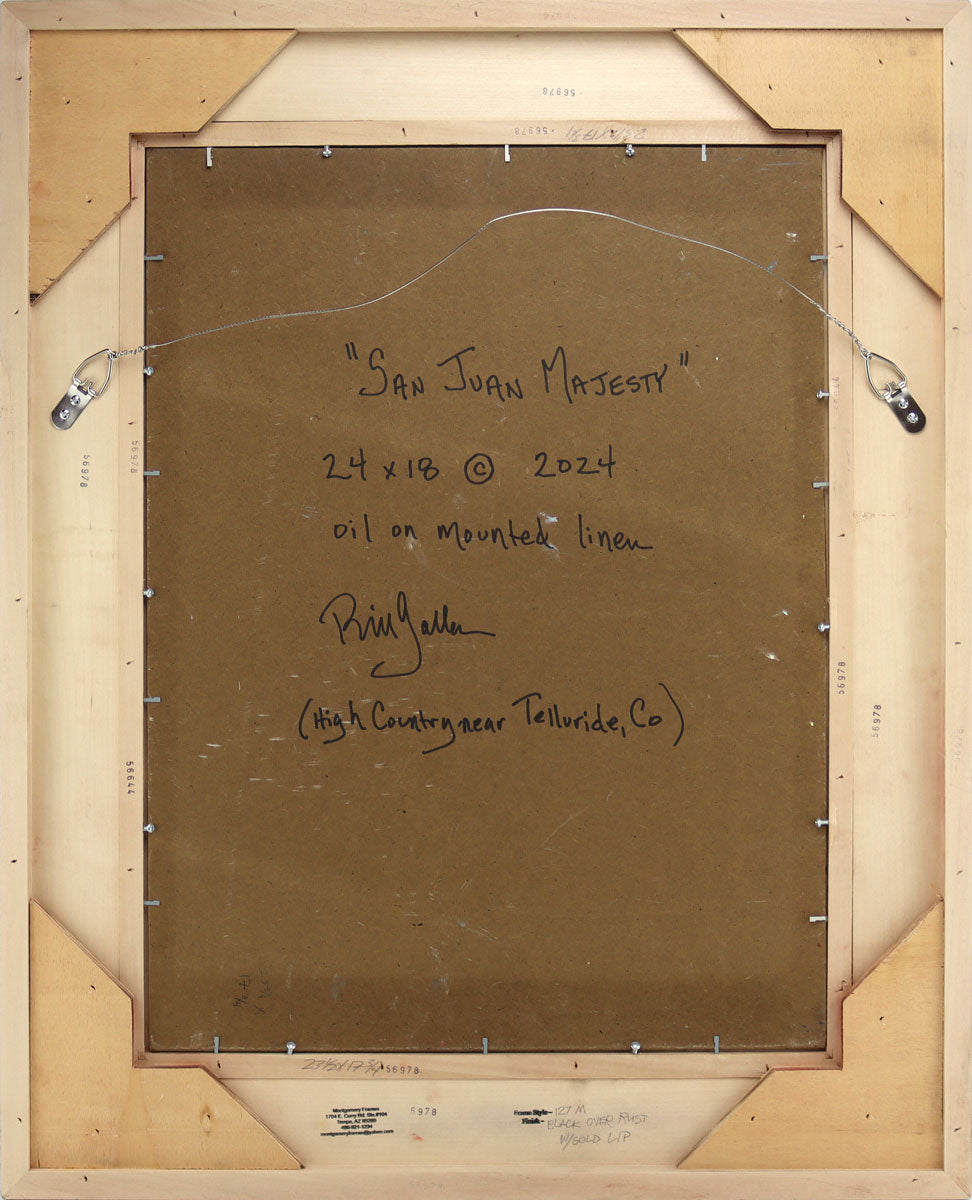 56978
56978 23 1/2 X 17 3/4
"SAN JUAN MAJESTY"
24 x 18 © 2024
oil on mounted linen
Bill Gallen
(High Country near Telluride, Co)
56978
56978
56978
56978
56644
23 1/2 X 17 3/4 56978
Montgomery Frames
1704 E. Curry Rd. Ste.#104
Tempe, AZ 85281
480-921-1234
5978
Frame Style- 127 M
Finish- BLACK OVER RUST
W/GOLD LIP